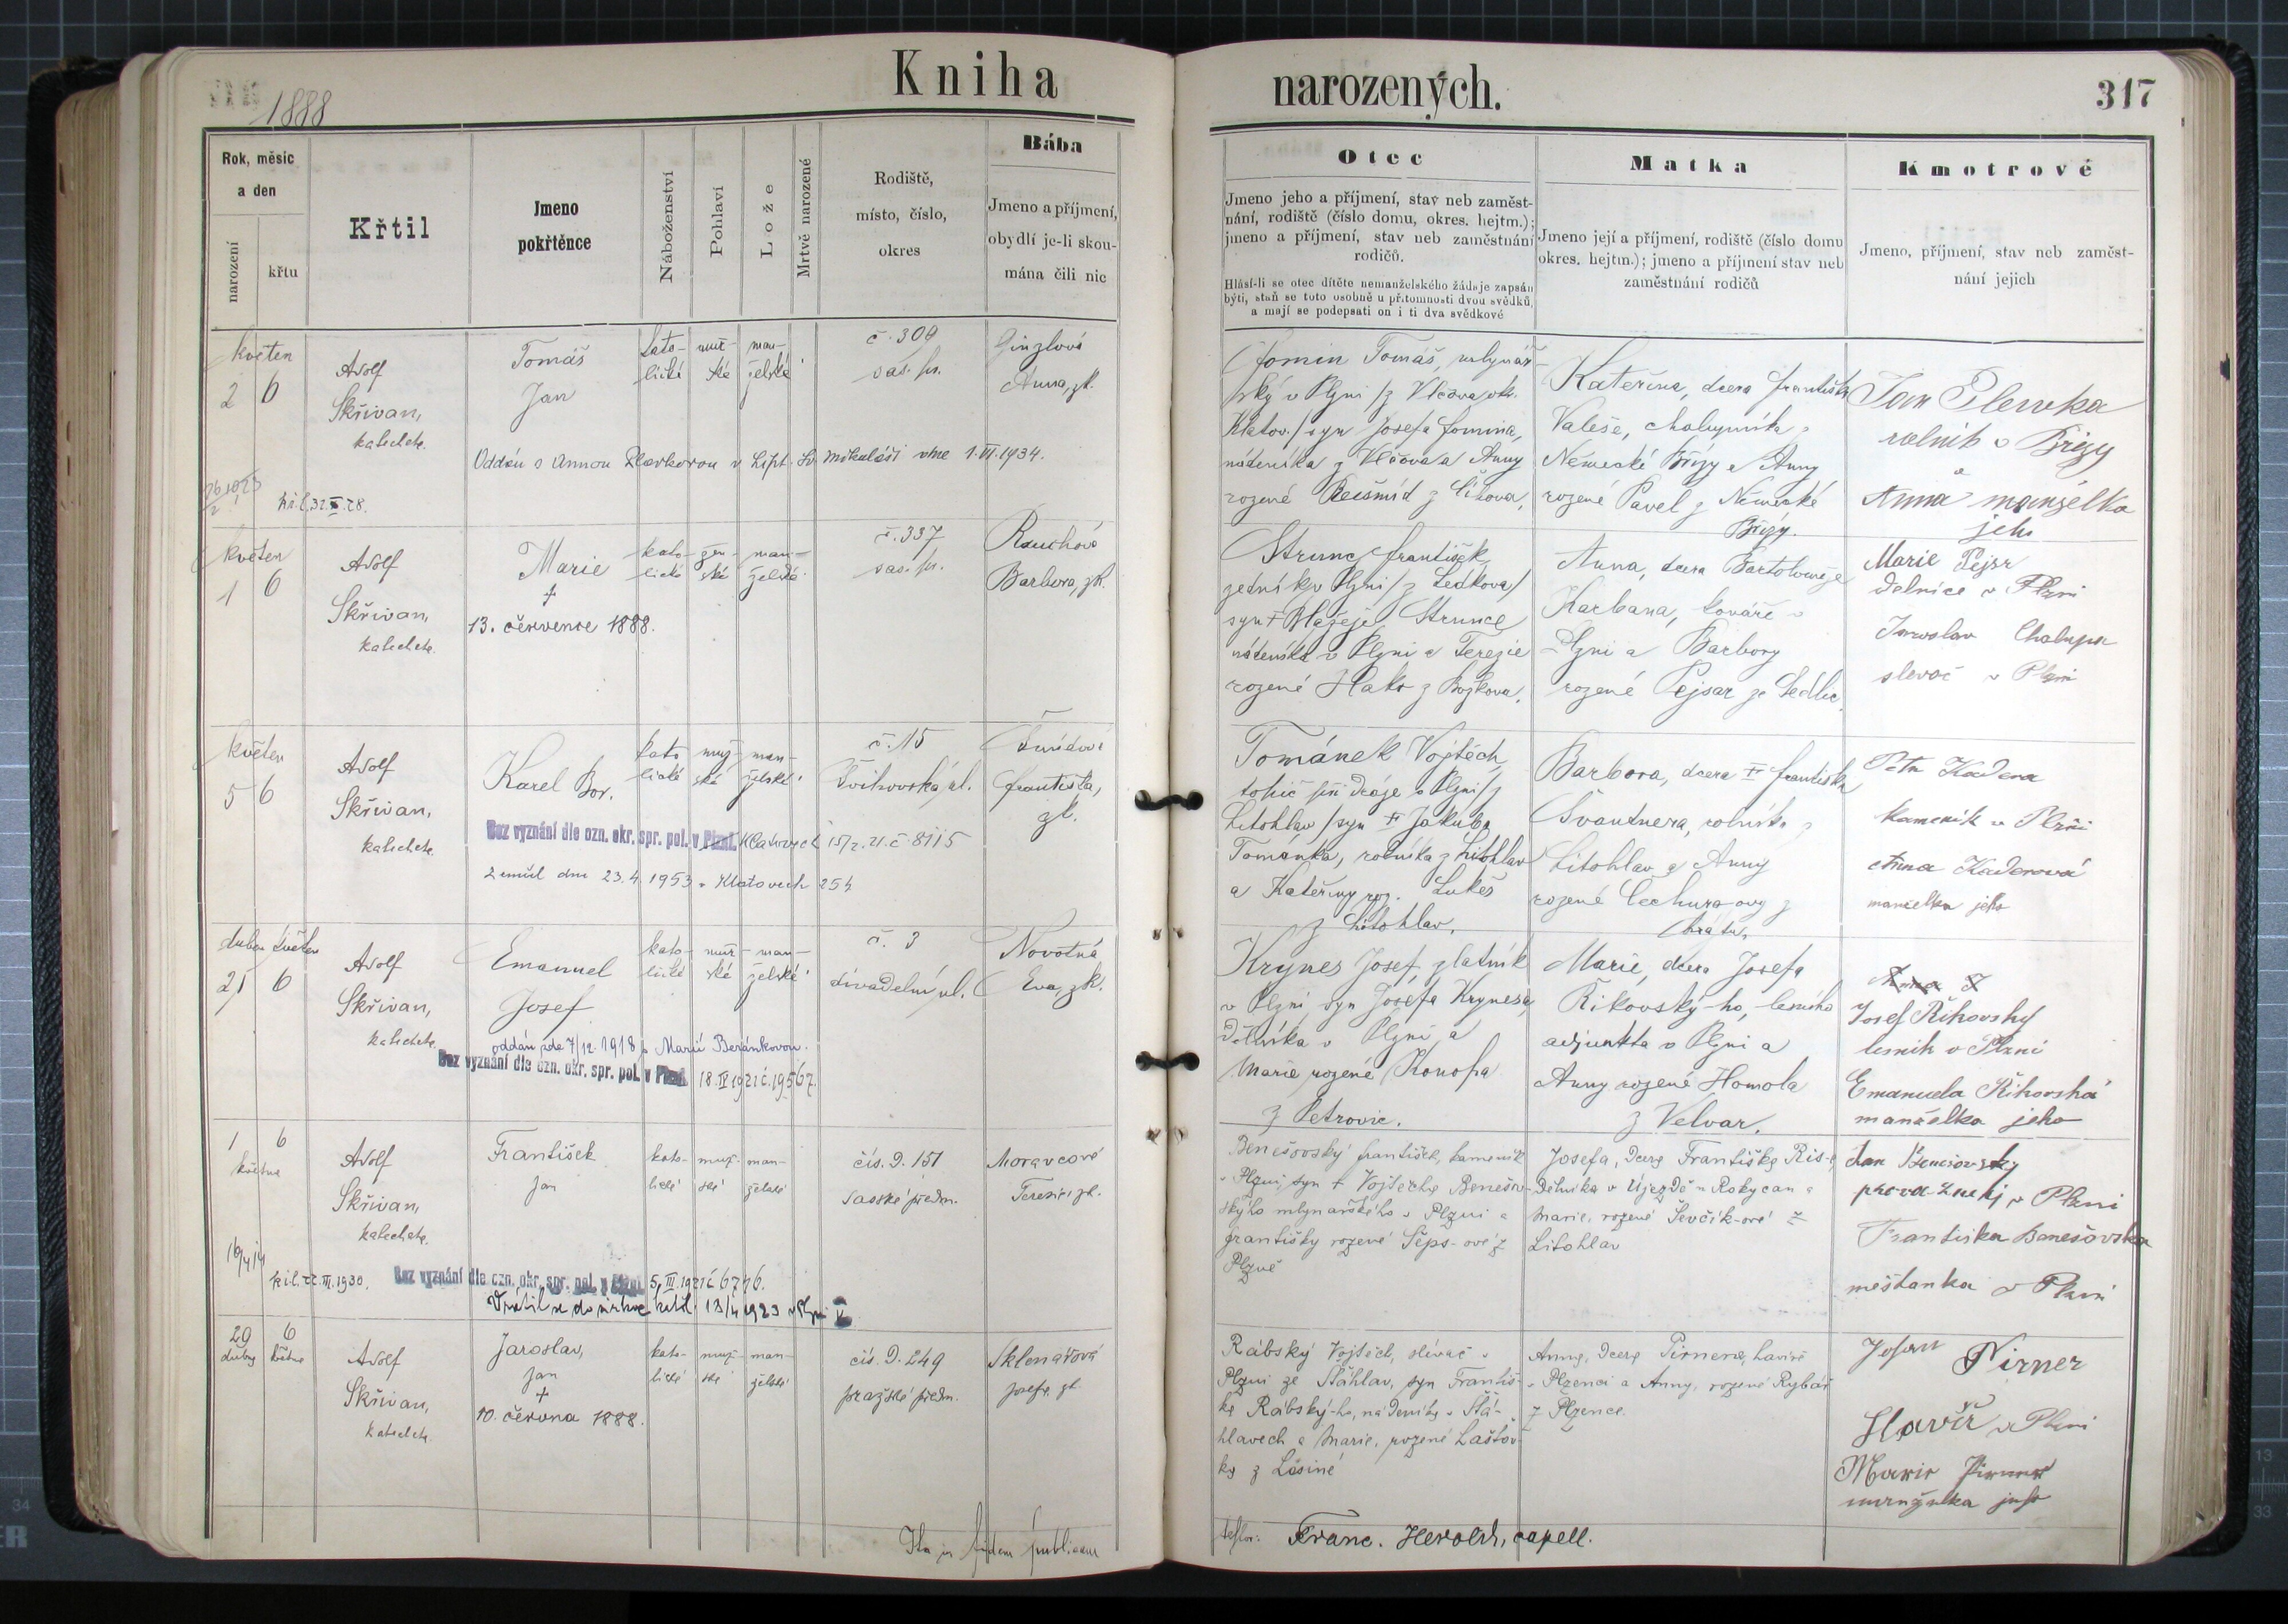 Kniha narozených.
317
1888
Rok, měsíc
a den
narození
křtu
Křtil
Jmeno
pokřtěnce
Náboženství
Pohlaví
Lože
Mrtvě narozené
Rodiště,
místo, číslo,
okres
Bába
Jmeno a příjmení,
obydlí je-li skou-
mána čili nic
Otec
Jmeno jeho a příjmení, stav neb zaměst-
nání, rodiště (číslo domu, okres. hejtm.);
jmeno a příjmení, stav neb zaměstnání
rodičů.
Hlásí-li se otec dítěte nemanželského žádaje zapsán
býti, staň se toto osobně u přítomnosti dvou svědků,
a mají se podepsati on i ti dva svědkové
Matka
Jmeno její a příjmení, rodiště (číslo domu
okres. hejtm.); jmeno a příjmení stav neb
zaměstnání rodičů
Kmotrové
Jmeno, příjmení, stav neb zaměst-
nání jejich
květen
2 6
Adolf
Skřivan,
katecheta.
Tomáš
Jan
kato-
lické
muž-
ské
man-
želské
č. 309
sas. př.
Ginzlová
Anna, zk.
Oddán s Annou v Lipt. Sv. Mikuláši dne 1.VI.1934.
Fomin Tomáš, mlynář-
ský v Plzni /z Vlčova okr.
Klatov./ syn Josefa Fomina,
nádeníka z Vlčova a Anny
rozené z
Kateřina, dcera Františka
Valeše, chalupníka z
Německé Břízy a Anny
rozené Pavel z Německé
Břízy.
Jan Plevka
rolník v Brizy
a
Anna manželka
jeho
květen
1 6
Adolf
Skřivan,
katecheta.
Marie
†
13. července 1888.
kato-
lické
žen-
ské
man-
želské
č. 337
sas. př.
Rauchová
Barbora, zk.
Strunc František,
zedník v Plzni /z Ledkova/
syn † Blažeje Strunce
nádeníka v Plzni a Terezie
rozené Hako z Božkova.
Anna, dcera Bartoloměje
Karbana, kováře v
Plzni a Barbory
rozené Pejsar ze Sedlec.
Marie Pejsr
delnice v Plzni
Jaroslav Chalupa
slevač v Plzni
květen
5 6
Adolf
Skřivan,
katecheta.
Karel Bor.
kato
lické
muž-
ské
man-
želské
č. 15
Švihovská ul.
Šmídová
Františka,
zk.
Bez vyznání dle ozn. okr. spr. pol. v Plzni. Klatovech 15/2. 21. č. 8115
Zemřel dne 23.4.1953 v Klatovech 254
Tománek Vojtěch,
topič při dráze v Plzni /z
Litohlav/ syn † Jakuba
Tománka, rolníka z Litohlav
a Kateřiny roz. Lukeš
z Litohlav.
Barbora, dcera † Františka
Švantnera, rolníka z
Litohlav a Anny
rozené Čechura-ovy z
Petr Kadera
kameník v Plzni
Anna Kaderová
manželka jeho
duben květen
21 6
Adolf
Skřivan,
katecheta.
Emanuel
Josef
kato-
lické
muž-
ské
man-
želské
č. 3
divadelní ul.
Novotná
Eva, zk.
oddán zde 7/12. 1918 s Marií Beránkovou.
Bez vyznání dle ozn. okr. spr. pol. v Plzni. 18.IV 1921 č. 19567.
Krynes Josef, zlatník
v Plzni, syn Josefa Krynesa,
dělníka v Plzni a
Marie rozené Konopa
z Petrovic.
Marie, dcera Josefa
Řikovský-ho, lesního
adjunkta v Plzni a
Anny rozené Homola
z Velvar.
Josef Řihovský
lesnik v Plzni
Emanuela Řihovská
manželka jeho
1 6
května
Adolf
Skřivan,
katecheta.
František
Jan
kato-
lické
muž-
ské
man-
želské
čís. D. 151
Saské předm.
Moravcová
Terezie, zk.
16/4 14
Bez vyznání dle ozn. okr. spr. pol. v Plzni. 5. III. 1921 č. 6776.
Vrátil se do církve katol. 13/4 1923 v Plzni
Benešovský František, kameník
v Plzni, syn † Vojtěcha Benešov-
ského mlynařského v Plzni a
Františky rozené Šeps-ové z
Plzně
Josefa, dcera Františka Ris-a
dělníka v Újezdě u Rokycan a
Marie, rozené Ševčík-ové z
Litohlav
Jan Benešovský
v Plzni
Frantiska Benešovska
meštanka v Plzni
29 6
dubna května
Adolf
Skřivan,
katecheta.
Jaroslav,
Jan
†
10. června 1888.
kato-
lické
muž-
ské
man-
želské
čís. D. 249
pražské předm.
Sklenářová
Josefa, zk.
Rábský Vojtěch, slévač v
Plzni ze Šťáhlav, syn Františ-
ka Rábský-ho, nádeníka v Šťá-
hlavech a Marie, rozené Laštov-
ky z Losiné
Anna, dcera Pirnera, havíře
v Plzenci a Anny, rozené Rybář
z Plzence.
Pirner
Havíř v Plzni
Marie Pirner
manželka jeho
Ita in fidem publicam
testor: Franc. Herold, capell.